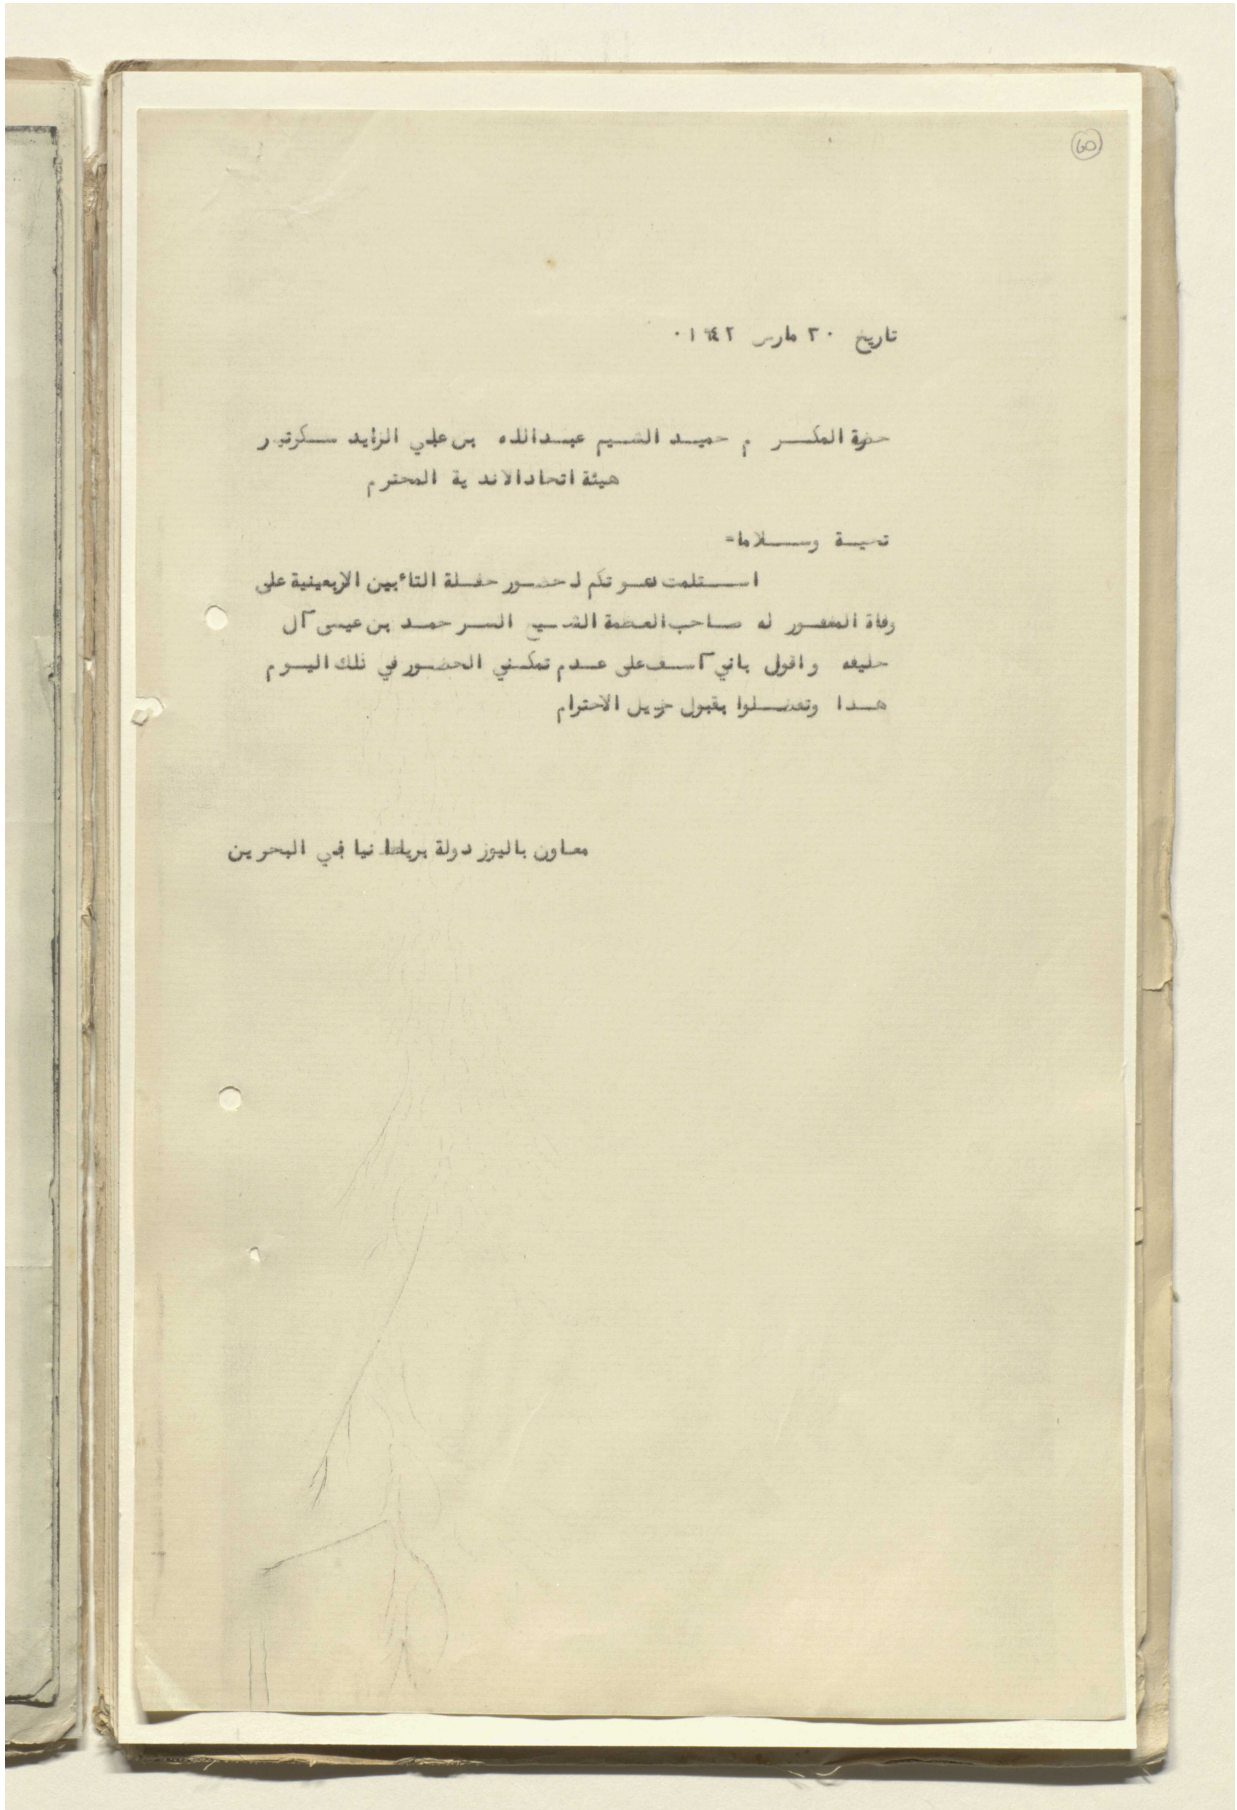 60
تاريخ ٣٠ مارس ١٩٤٢٠
حضرة المكرم حميد الشيم عبدالله بن علي الزايد سكرتير
هيئة اتحاد الاندية المحترم
تحية وسلاما=
استلمت دعوتكم لحضور حفلة التاءبين الاربعينية على
وفاة المغفور له صاحب العظمة الشيخ السر حمد بن عيسى آل
خليفه واقول باني آسف على عدم تمكني الحضور في ذلك اليوم
هذا وتفضلوا بقبول جزيل الاحترام
معاون باليوز دولة بريطانيا في البحرين